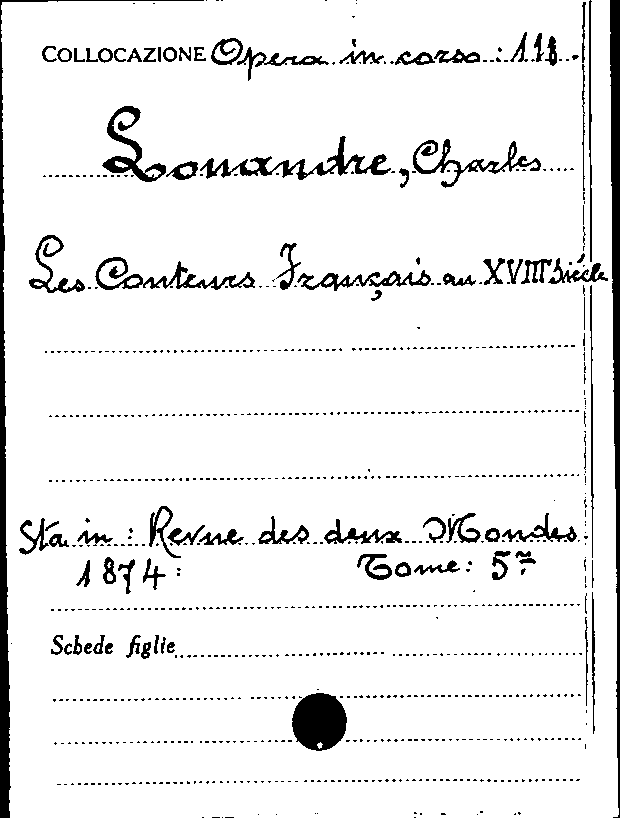 COLLOCAZIONE Opera in corso: 118.
Louandre, Charles
Les Conteurs Français au XVIII Siécle
Sta in: Revue des deux Mondes
1874: Tome: 5
Schede figlie